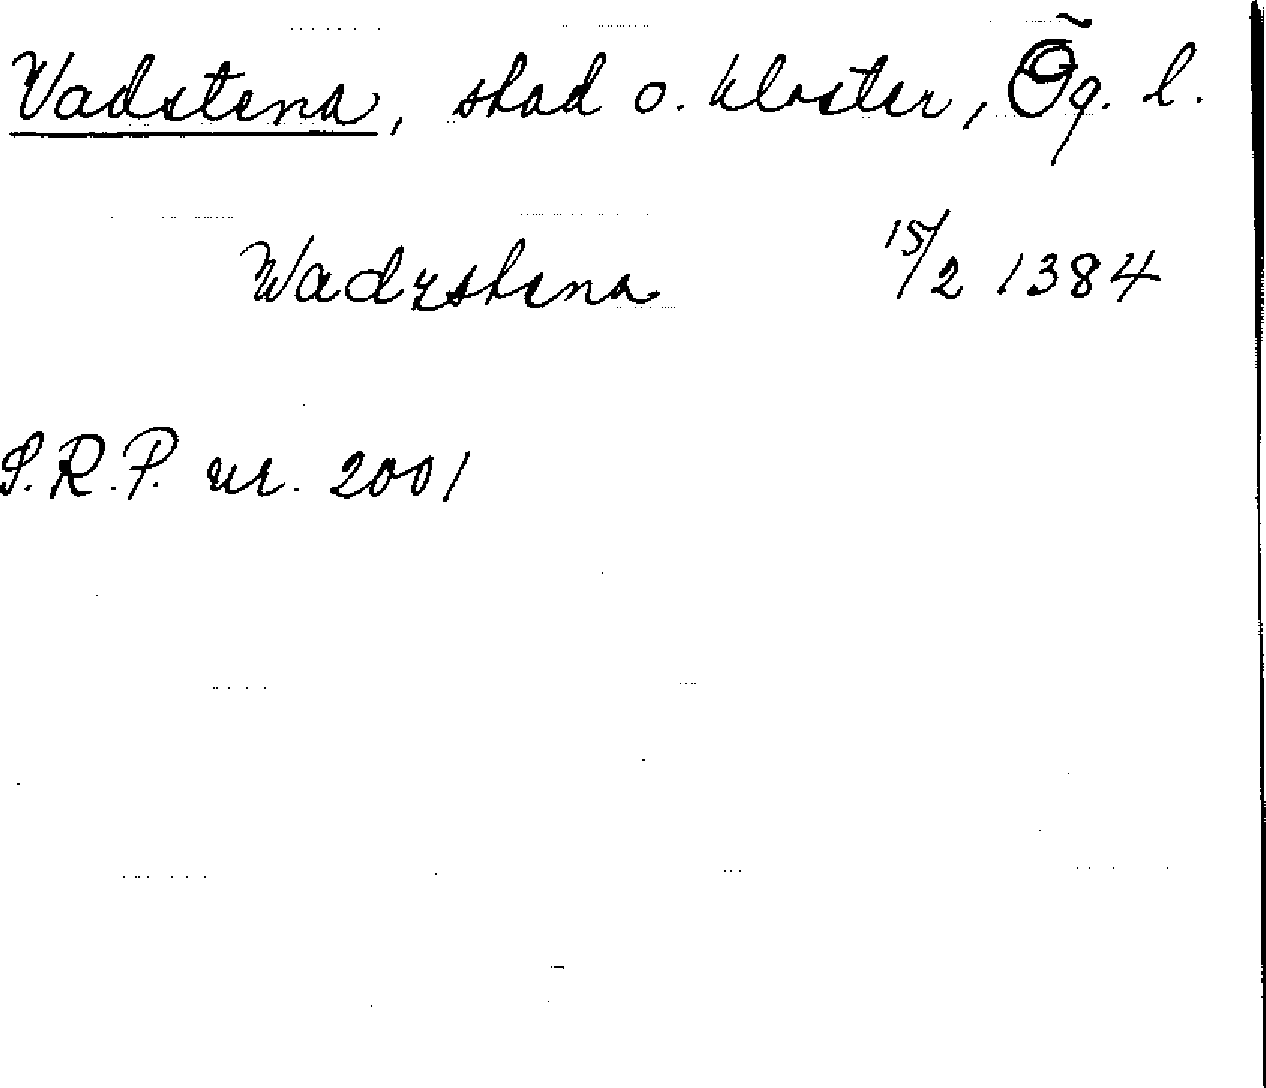 Vadstena, stad o. kloster, Ög. l.
Wadzstena 15/2 1384
S.R.P. nr. 2001